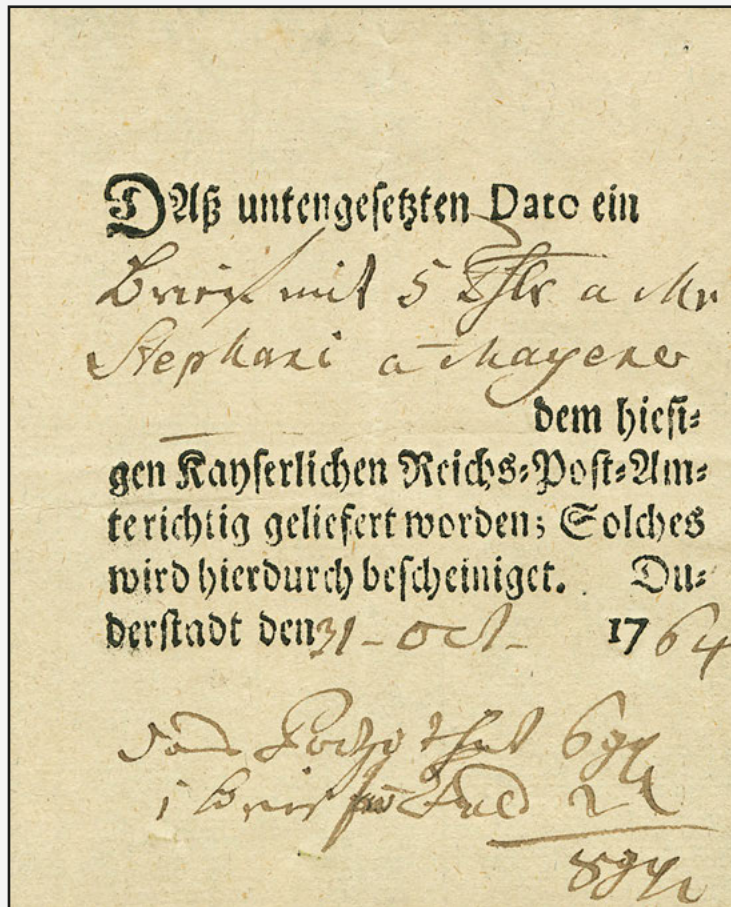 DAß untengesetzten Dato ein
Brief mit 5 Thlr a Mr
Stephani a Mayence
dem hiesi=
gen Kayserlichen Reichs=Post=Am=
te richtig geliefert worden; Solches
wird hierdurch bescheiniget. Du=
derstadt den 31 - Oct - 1764
Porto thut 6 ggr
1 Brief 2
8 ggr